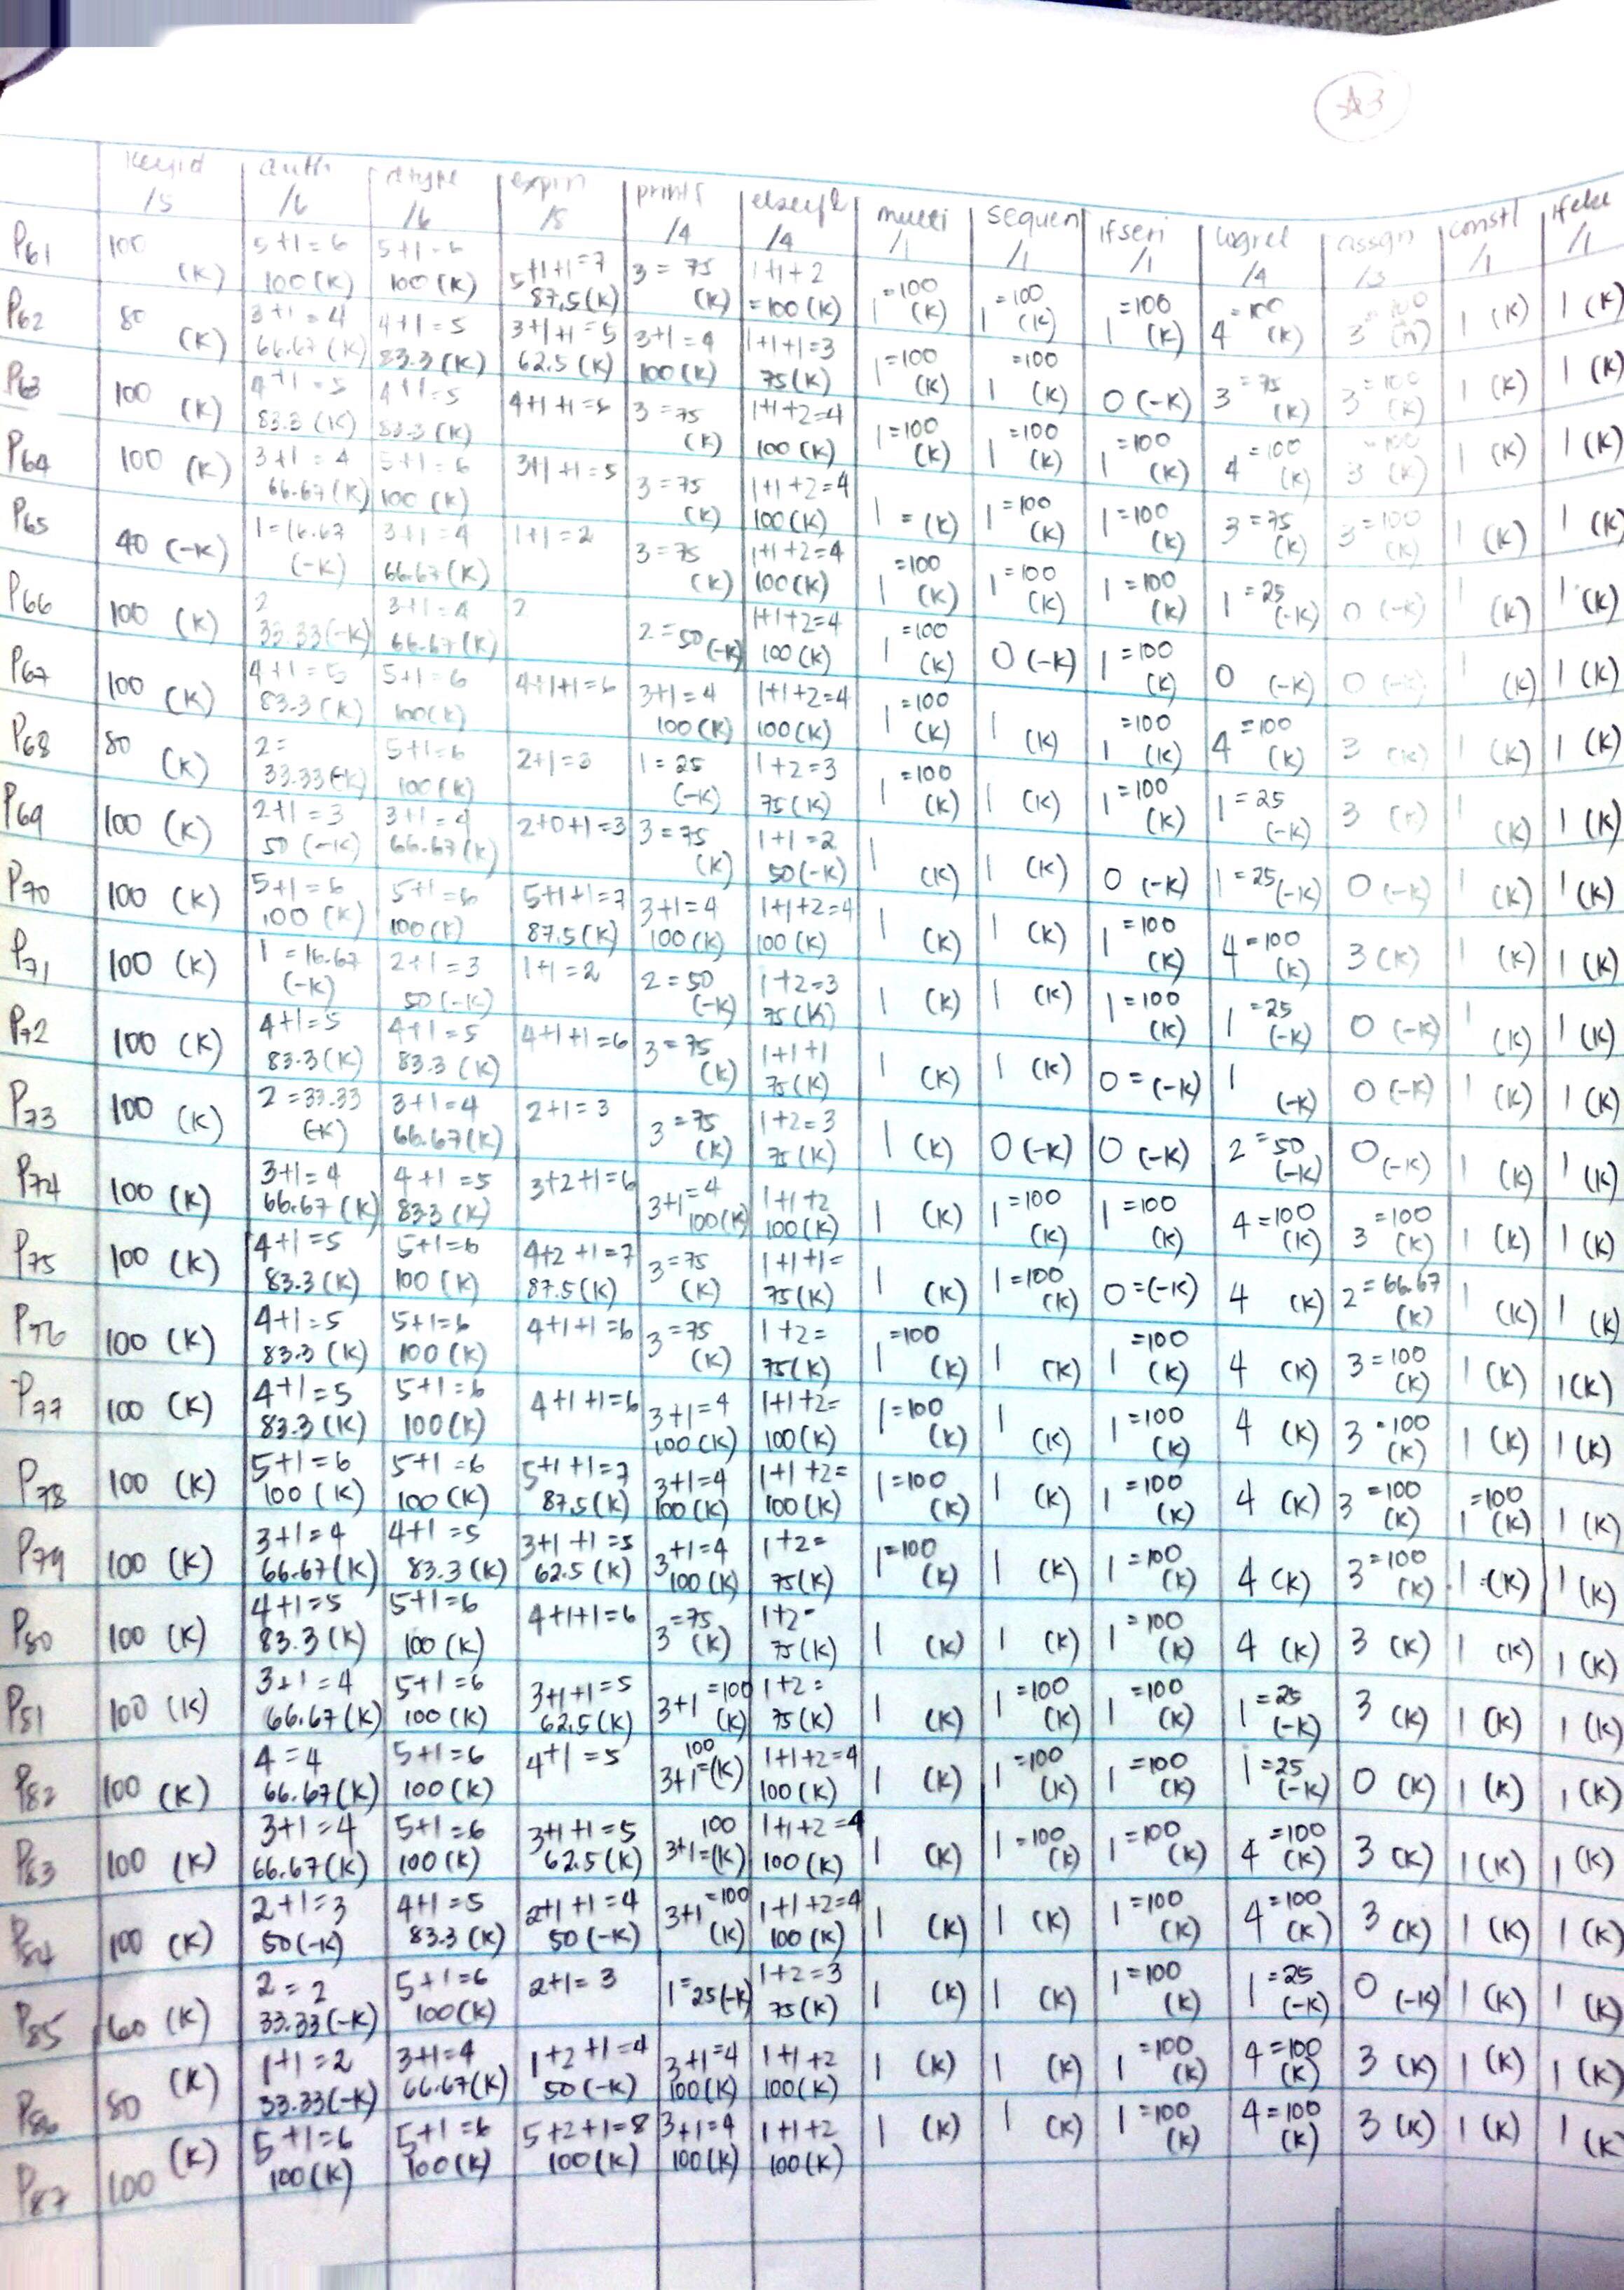 ☆3
Keyid auth dtype expin printf elseif2 multi sequen ifseri logrel assgn constl ifelse
/5 /6 /6 /8 /4 /4 /1 /1 /1 /4 /3 /1 /1
P61 100 (K) 5+1=6 100(K) 5+1=6 100(K) 5+1+1=7 87.5(K) 3=75 (K) 1+1+2 =100(K) 1=100 (K) 1=100 (K) 1=100 (K) 4=100 (K) 3=100 (K) 1 (K) 1 (K)
P62 80 (K) 3+1=4 66.67(K) 4+1=5 83.3(K) 3+1+1=5 62.5(K) 3+1=4 100(K) 1+1+1=3 75(K) 1=100 (K) 1=100 (K) 0(-K) 3=75 (K) 3=100 (K) 1 (K) 1 (K)
P63 100 (K) 4+1=5 83.3(K) 4+1=5 83.3(K) 4+1+1=6 3=75 (K) 1+1+2=4 100(K) 1=100 (K) 1=100 (K) 1=100 (K) 4=100 (K) 3=100 (K) 1 (K) 1 (K)
P64 100 (K) 3+1=4 66.67(K) 5+1=6 100(K) 3+1+1=5 3=75 (K) 1+1+2=4 100(K) 1=(K) 1=100 (K) 1=100 (K) 3=75 (K) 3=100 (K) 1 (K) 1 (K)
P65 40(-K) 1=16.67 (-K) 3+1=4 66.67(K) 1+1=2 3=75 (K) 1+1+2=4 100(K) 1=100 (K) 1=100 (K) 1=100 (K) 1=25 (-K) 0(-K) 1 (K) 1 (K)
P66 100 (K) 2 33.33(-K) 3+1=4 66.67(K) 2 2=50(-K) 1+1+2=4 100(K) 1=100 (K) 0(-K) 1=100 (K) 0 (-K) 0(-K) 1 (K) 1 (K)
P67 100 (K) 4+1=5 83.3(K) 5+1=6 100(K) 4+1+1=6 3+1=4 100(K) 1+1+2=4 100(K) 1=100 (K) 1 (K) 1=100 (K) 4=100 (K) 3 (K) 1 (K) 1 (K)
P68 80 (K) 2= 33.33(-K) 5+1=6 100(K) 2+1=3 1=25 (-K) 1+2=3 75(K) 1=100 (K) 1 (K) 1=100 (K) 1=25 (-K) 3 (K) 1 (K) 1 (K)
P69 100 (K) 2+1=3 50(-K) 3+1=4 66.67(K) 2+0+1=3 3=75 (K) 1+1=2 50(-K) 1 (K) 1 (K) 0(-K) 1=25(-K) 0(-K) 1 (K) 1(K)
P70 100 (K) 5+1=6 100(K) 5+1=6 100(K) 5+1+1=7 87.5(K) 3+1=4 100(K) 1+1+2=4 100(K) 1 (K) 1 (K) 1=100 (K) 4=100 (K) 3(K) 1 (K) 1(K)
P71 100 (K) 1=16.67 (-K) 2+1=3 50(-K) 1+1=2 2=50 (-K) 1+2=3 75(K) 1 (K) 1 (K) 1=100 (K) 1=25 (-K) 0(-K) 1 (K) 1(K)
P72 100 (K) 4+1=5 83.3(K) 4+1=5 83.3(K) 4+1+1=6 3=75 (K) 1+1+1 75(K) 1 (K) 1 (K) 0=(-K) 1 (-K) 0(-K) 1 (K) 1(K)
P73 100 (K) 2=33.33 (-K) 3+1=4 66.67(K) 2+1=3 3=75 (K) 1+2=3 75(K) 1 (K) 0(-K) 0(-K) 2=50 (-K) 0(-K) 1 (K) 1(K)
P74 100 (K) 3+1=4 66.67(K) 4+1=5 83.3(K) 3+2+1=6 3+1=4 100(K) 1+1+2 100(K) 1 (K) 1=100 (K) 1=100 (K) 4=100 (K) 3=100 (K) 1 (K) 1(K)
P75 100 (K) 4+1=5 83.3(K) 5+1=6 100(K) 4+2+1=7 87.5(K) 3=75 (K) 1+1+1= 75(K) 1 (K) 1=100 (K) 0=(-K) 4 (K) 2=66.67 (K) 1 (K) 1 (K)
P76 100 (K) 4+1=5 83.3(K) 5+1=6 100(K) 4+1+1=6 3=75 (K) 1+2= 75(K) 1=100 (K) 1 (K) 1=100 (K) 4 (K) 3=100 (K) 1 (K) 1(K)
P77 100 (K) 4+1=5 83.3(K) 5+1=6 100(K) 4+1+1=6 3+1=4 100(K) 1+1+2= 100(K) 1=100 (K) 1 (K) 1=100 (K) 4 (K) 3=100 (K) 1 (K) 1(K)
P78 100 (K) 5+1=6 100(K) 5+1=6 100(K) 5+1+1=7 87.5(K) 3+1=4 100(K) 1+1+2= 100(K) 1=100 (K) 1 (K) 1=100 (K) 4 (K) 3=100 (K) 1=100 (K) 1(K)
P79 100 (K) 3+1=4 66.67(K) 4+1=5 83.3(K) 3+1+1=5 62.5(K) 3+1=4 100(K) 1+2= 75(K) 1=100 (K) 1 (K) 1=100 (K) 4(K) 3=100 (K) 1 (K) 1(K)
P80 100 (K) 4+1=5 83.3(K) 5+1=6 100(K) 4+1+1=6 3=75 (K) 1+2= 75(K) 1 (K) 1 (K) 1=100 (K) 4 (K) 3 (K) 1 (K) 1(K)
P81 100 (K) 3+1=4 66.67(K) 5+1=6 100(K) 3+1+1=5 62.5(K) 3+1=100 (K) 1+2= 75(K) 1 (K) 1=100 (K) 1=100 (K) 1=25 (-K) 3 (K) 1 (K) 1(K)
P82 100 (K) 4=4 66.67(K) 5+1=6 100(K) 4+1=5 100 3+1=(K) 1+1+2=4 100(K) 1 (K) 1=100 (K) 1=100 (K) 1=25 (-K) 0 (K) 1 (K) 1(K)
P83 100 (K) 3+1=4 66.67(K) 5+1=6 100(K) 3+1+1=5 62.5(K) 100 3+1=(K) 1+1+2=4 100(K) 1 (K) 1=100 (K) 1=100 (K) 4=100 (K) 3 (K) 1(K) 1(K)
P84 100 (K) 2+1=3 50(-K) 4+1=5 83.3(K) 2+1+1=4 50(-K) 3+1=100 (K) 1+1+2=4 100(K) 1 (K) 1 (K) 1=100 (K) 4=100 (K) 3 (K) 1 (K) 1(K)
P85 60 (K) 2=2 33.33(-K) 5+1=6 100(K) 2+1=3 1=25(-K) 1+2=3 75(K) 1 (K) 1 (K) 1=100 (K) 1=25 (-K) 0 (-K) 1 (K) 1(K)
P86 80 (K) 1+1=2 33.33(-K) 3+1=4 66.67(K) 1+2+1=4 50(-K) 3+1=4 100(K) 1+1+2 100(K) 1 (K) 1 (K) 1=100 (K) 4=100 (K) 3 (K) 1 (K) 1(K)
P87 100 (K) 5+1=6 100(K) 5+1=6 100(K) 5+2+1=8 100(K) 3+1=4 100(K) 1+1+2 100(K) 1 (K) 1 (K) 1=100 (K) 4=100 (K) 3 (K) 1 (K) 1(K)